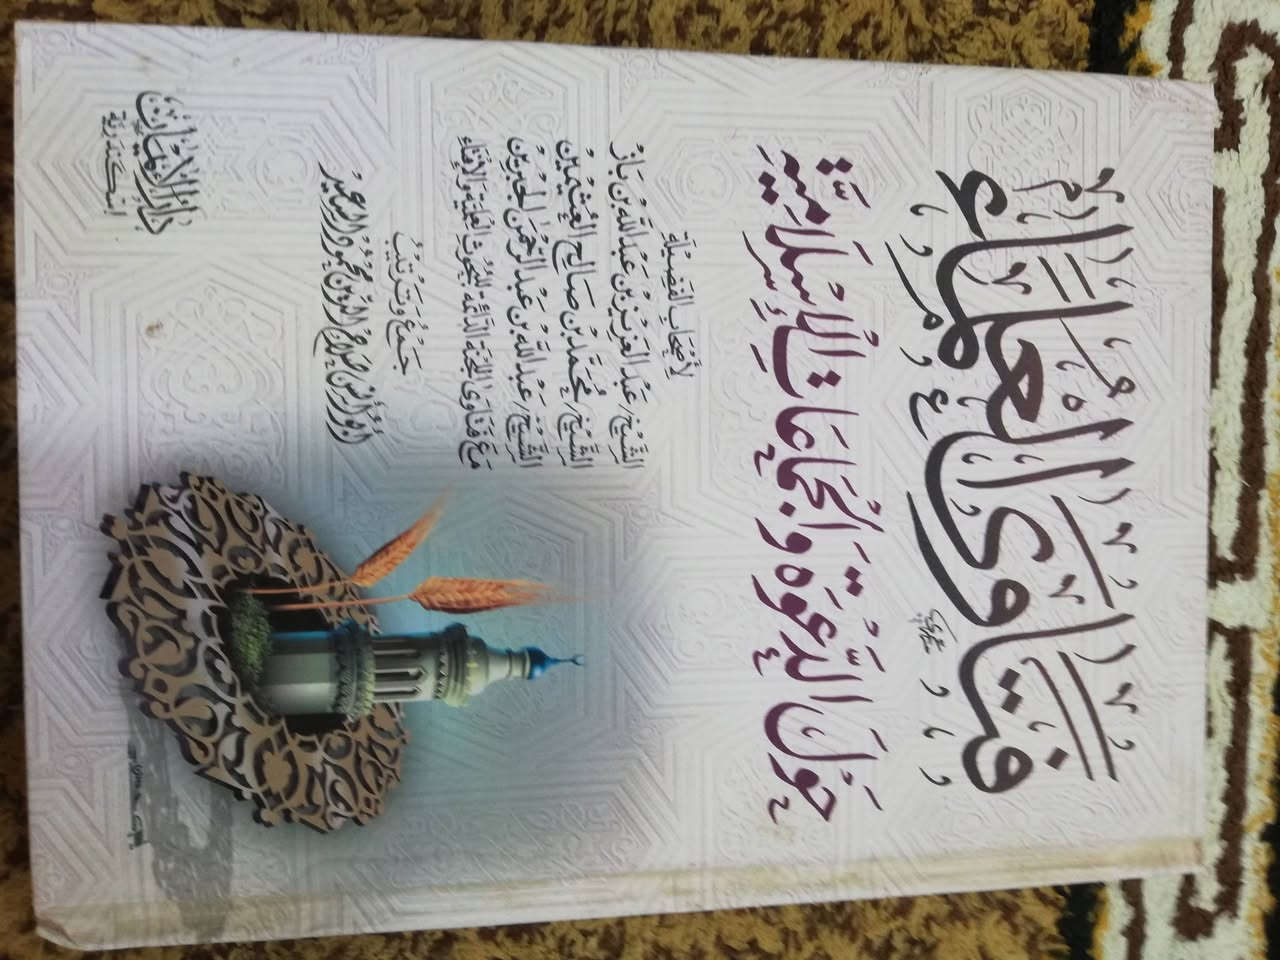 فتاوى العلماء
حول الدعوة والجماعات الإسلامية
لأصحاب الفضيلة
الشيخ/ عبد العزيز بن عبد الله بن باز
الشيخ/ محمد بن صالح العثيمين
الشيخ/ عبد الله بن عبد الرحمن الجبرين
مع فتاوى اللجنة الدائمة للبحوث العلمية والإفتاء
جمع وترتيب
أبو أنس صلاح الدين محمود السعيد
دار الإيمان
إسكندرية